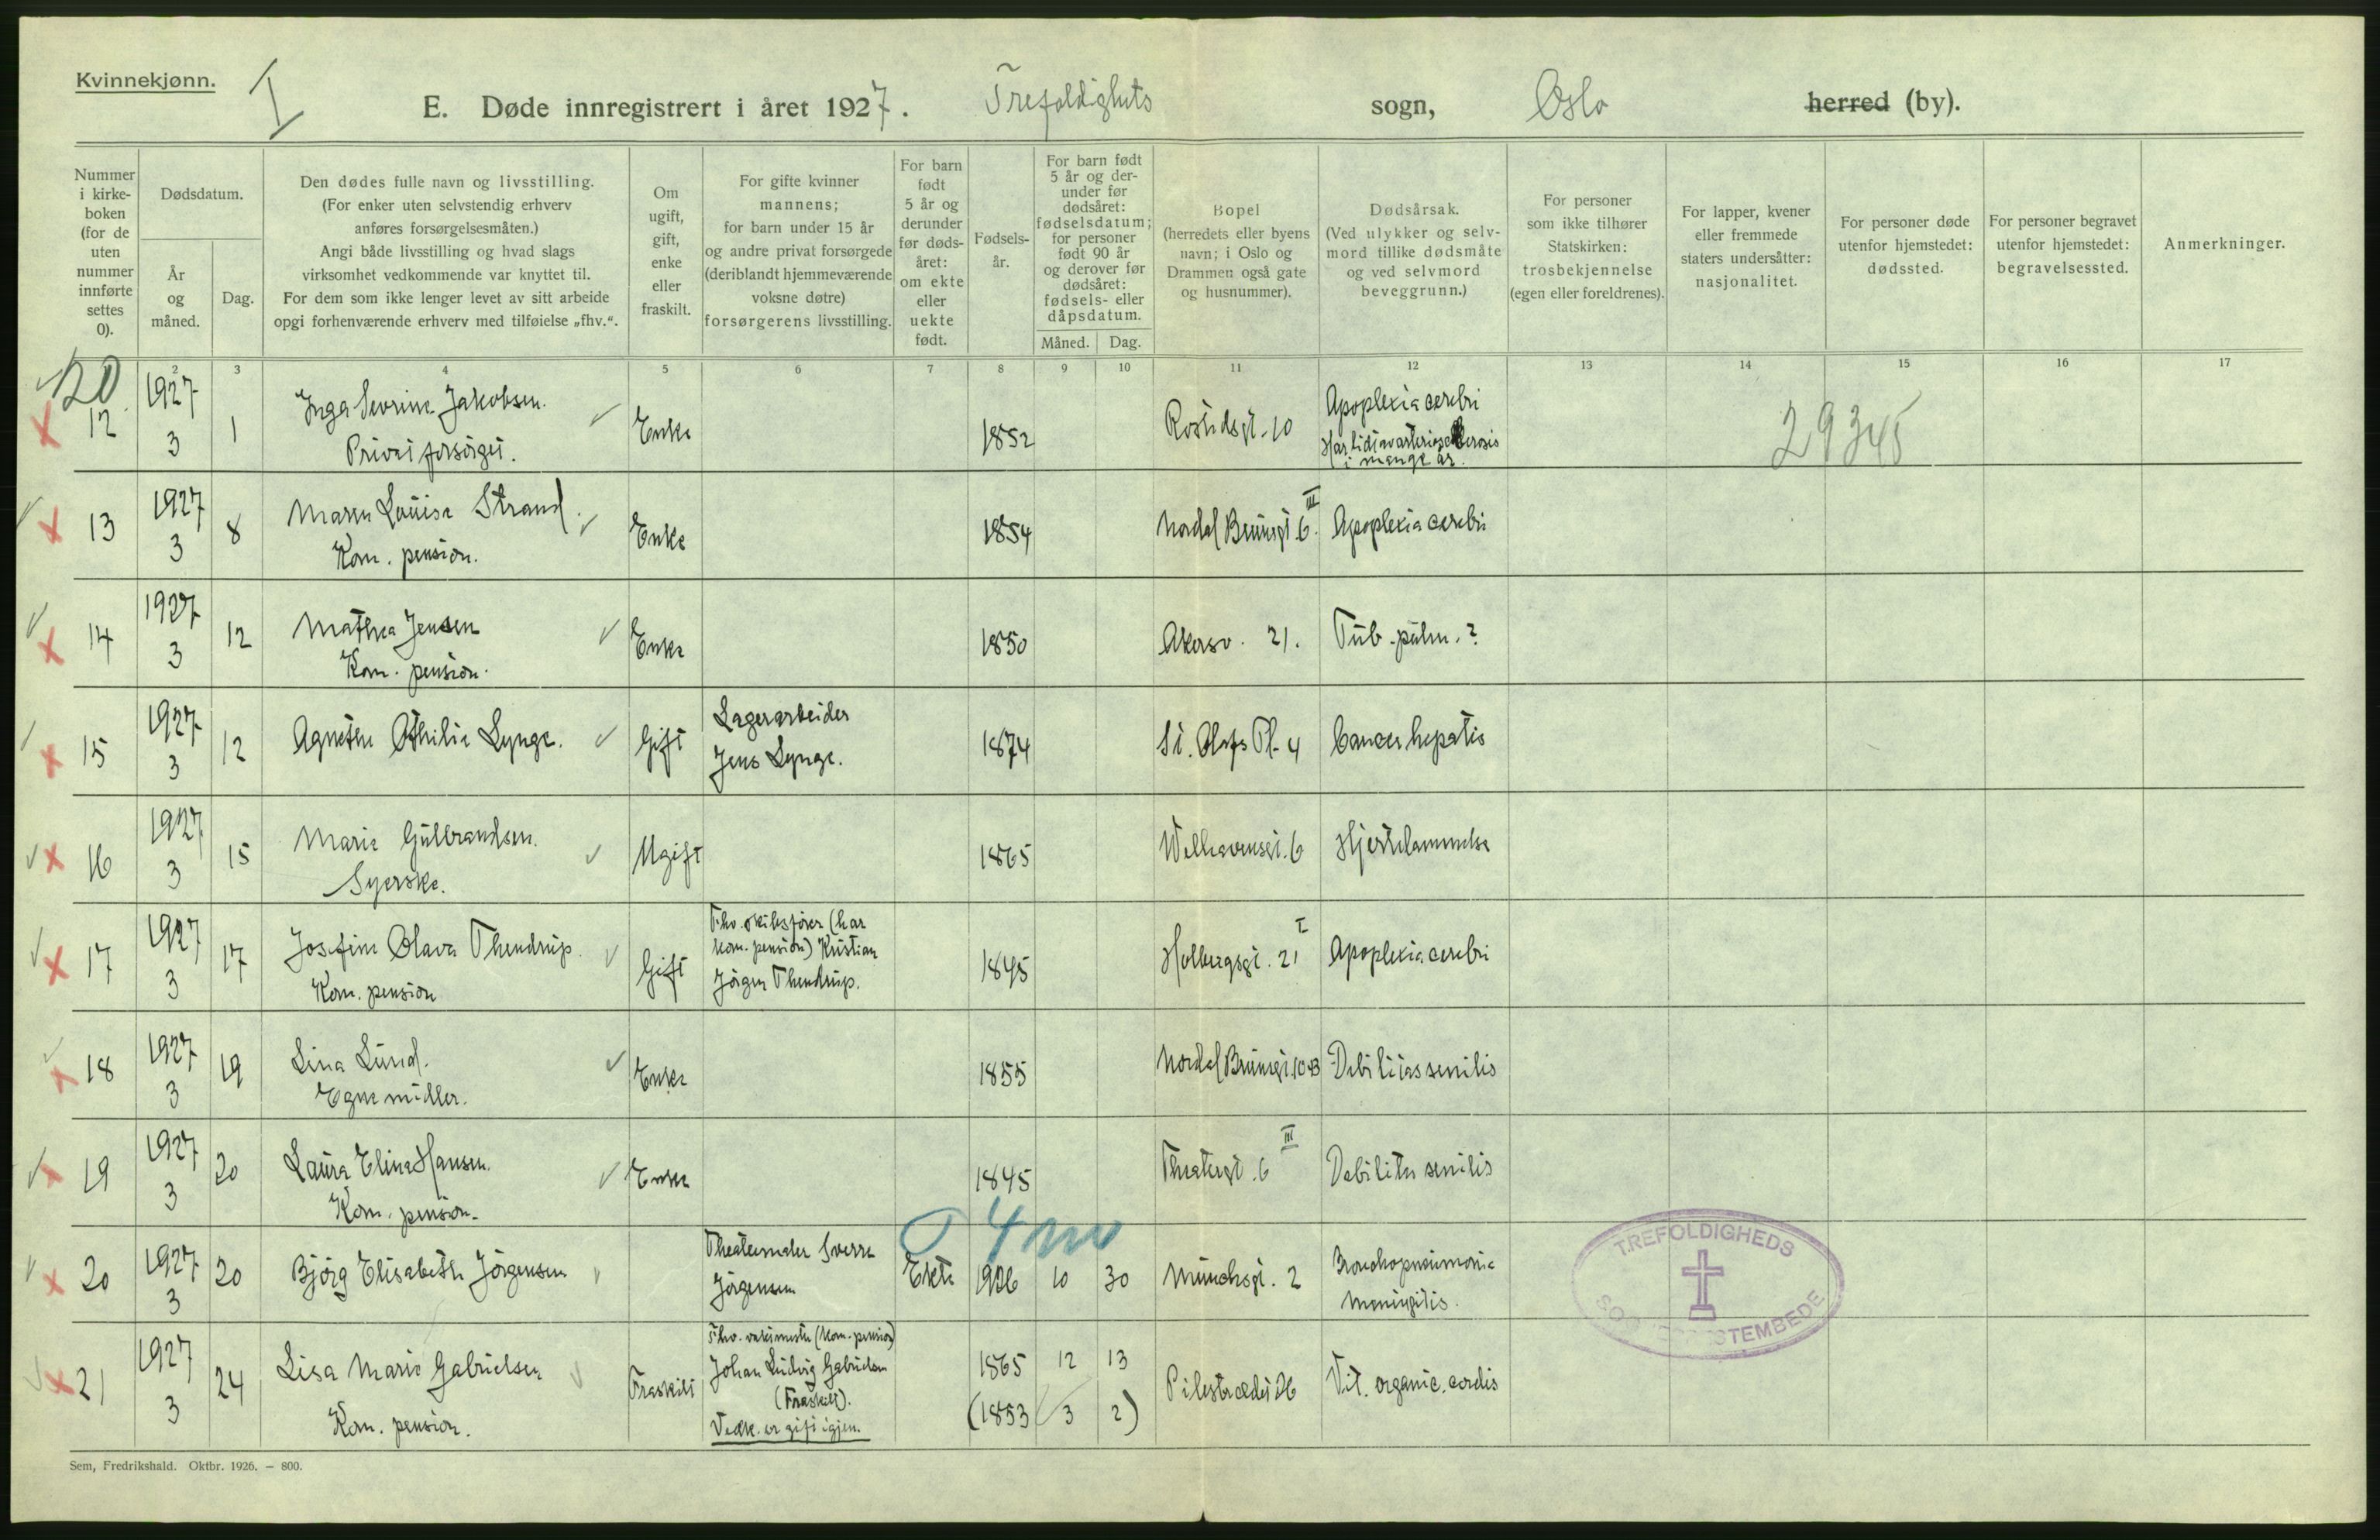 Kvinnekjønn.
I
E. Døde innregistrert i året 1927. Trefoldighets sogn, Oslo herred (by).
Nummer i kirkeboken (for de uten nummer innførte settes 0).
Dødsdatum.
År og måned.
Dag.
Den dødes fulle navn og livsstilling.
(For enker uten selvstendig erhverv
anføres forsørgelsesmåten.)
Angi både livsstilling og hvad slags
virksomhet vedkommende var knyttet til.
For dem som ikke lenger levet av sitt arbeide
opgi forhenværende erhverv med tilføielse „fhv.“.
Om ugift, gift, enke eller fraskilt.
For gifte kvinner
mannens;
for barn under 15 år
og andre privat forsørgede
(deriblandt hjemmeværende
voksne døtre)
forsørgerens livsstilling.
For barn født 5 år og derunder før dødsåret: om ekte eller uekte født.
Fødselsår.
For barn født 5 år og derunder før dødsåret: fødselsdatum; for personer født 90 år og derover før dødsåret: fødsels- eller dåpsdatum.
Måned. Dag.
Bopel
(herredets eller byens
navn; i Oslo og
Drammen også gate
og husnummer).
Dødsårsak.
(Ved ulykker og selvmord tillike dødsmåte
og ved selvmord
beveggrunn.)
For personer
som ikke tilhører
Statskirken:
trosbekjennelse
(egen eller foreldrenes).
For lapper, kvener
eller fremmede
staters undersåtter:
nasjonalitet.
For personer døde
utenfor hjemstedet:
dødssted.
For personer begravet
utenfor hjemstedet:
begravelsessted.
Anmerkninger.
2 3 4 5 6 7 8 9 10 11 12 13 14 15 16 17
20
12 1927 3 1 Inga Sevrine Jakobsen. Privat forsørget. Enke 1852 Rostedsgt. 10 Apoplexia cerebri Har lidt av arteriosclerosis i mange år. 29345
13 1927 3 8 Maren Louise Strand. Kom. pension. Enke 1854 Nordal Brunsgt. 6 III Apoplexia cerebri
14 1927 3 12 Mathea Jensen Kom. pension. Enke 1850 Akersv. 21. Tub. pulm. ?
15 1927 3 12 Agnethe Othilie Lynge. Gift Lagerarbeider Jens Lynge. 1874 St. Olafs Pl. 4 Cancer hepatis
16 1927 3 15 Marie Gulbrandsen. Syerske. Ugift 1865 Welhavensgt. 6 Hjertelammelse
17 1927 3 17 Josefine Olava Thendrup. Kom. pension Gift Fhv. skibsfører (har kom. pension) Kristian Jörgen Thendrup. 1845 Holbergsgt. 21 I Apoplexia cerebri
18 1927 3 19 Lina Lund. Egne midler. Enke 1855 Nordal Brunsgt. 10 B Debilitas senilis
19 1927 3 20 Laura Elina Hansen. Kom. pension. Enke 1845 Theatergt. 6 III Debilitas senilis
4 m
20 1927 3 20 Bjørg Elisabeth Jörgensen Theatermaler Sverre Jörgensen Ekte 1926 10 30 Munchsgt. 2 Bronchopneumonie Meningitis.
21 1927 3 24 Lisa Marie Gabrielsen Kom. pension. Fraskilt Fhv. vaktmester (Kom. pension) Johan Ludvig Gabrielsen (Fraskilt). Vedk. er gift igjen. 1865 12 13 (1853 3 2) Pilestrædet 26 Vit. organic. cordis
TREFOLDIGHEDS
Sem, Fredrikshald. Oktbr. 1926. – 800.